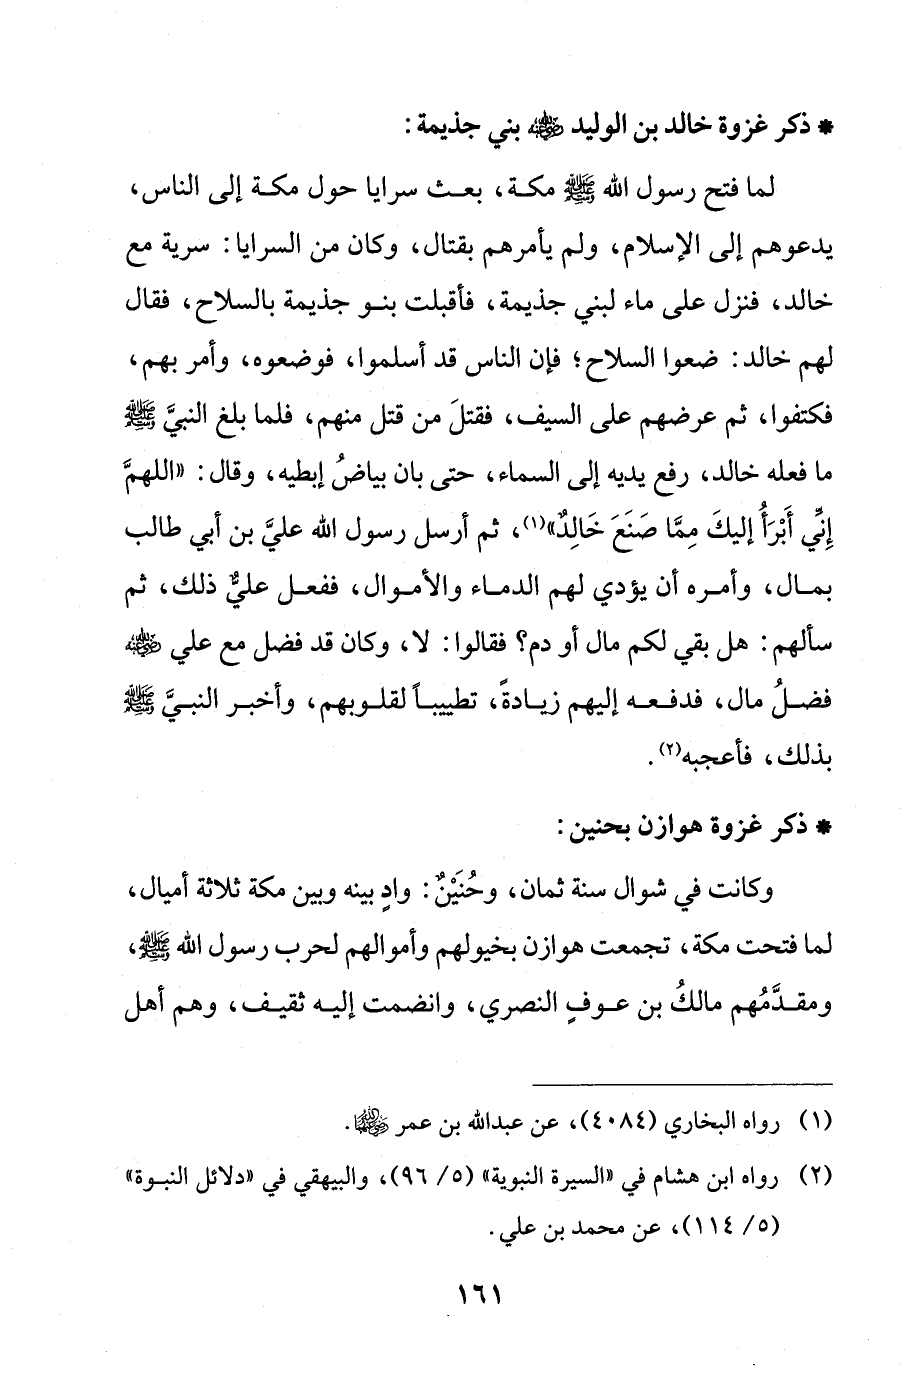 * ذكر غزوة خالد بن الوليد ﵁ بني جذيمة:
لما فتح رسول الله ﷺ مكة، بعث سرايا حول مكة إلى الناس،
يدعوهم إلى الإسلام، ولم يأمرهم بقتال، وكان من السرايا: سرية مع
خالد، فنزل على ماء لبني جذيمة، فأقبلت بنو جذيمة بالسلاح، فقال
لهم خالد: ضعوا السلاح؛ فإن الناس قد أسلموا، فوضعوه، وأمر بهم،
فكتفوا، ثم عرضهم على السيف، فقتلَ من قتل منهم، فلما بلغ النبيَّ ﷺ
ما فعله خالد، رفع يديه إلى السماء، حتى بان بياضُ إبطيه، وقال: «اللهمَّ
إنِّي أَبْرَأُ إليكَ مِمَّا صَنَعَ خَالِدٌ»(١)، ثم أرسل رسول الله عليَّ بن أبي طالب
بمال، وأمره أن يؤدي لهم الدماء والأموال، ففعل عليٌّ ذلك، ثم
سألهم: هل بقي لكم مال أو دم؟ فقالوا: لا، وكان قد فضل مع علي ﵁
فضلُ مال، فدفعه إليهم زيادةً، تطييباً لقلوبهم، وأخبر النبيَّ ﷺ
بذلك، فأعجبه(٢).
* ذكر غزوة هوازن بحنين:
وكانت في شوال سنة ثمان، وحُنَيْنٌ: وادٍ بينه وبين مكة ثلاثة أميال،
لما فتحت مكة، تجمعت هوازن بخيولهم وأموالهم لحرب رسول الله ﷺ،
ومقدَّمُهم مالكُ بن عوفٍ النصري، وانضمت إليه ثقيف، وهم أهل
(١) رواه البخاري (٤٠٨٤)، عن عبدالله بن عمر ﵄.
(٢) رواه ابن هشام في «السيرة النبوية» (٥/ ٩٦)، والبيهقي في «دلائل النبوة»
(٥/ ١١٤)، عن محمد بن علي.
١٦١